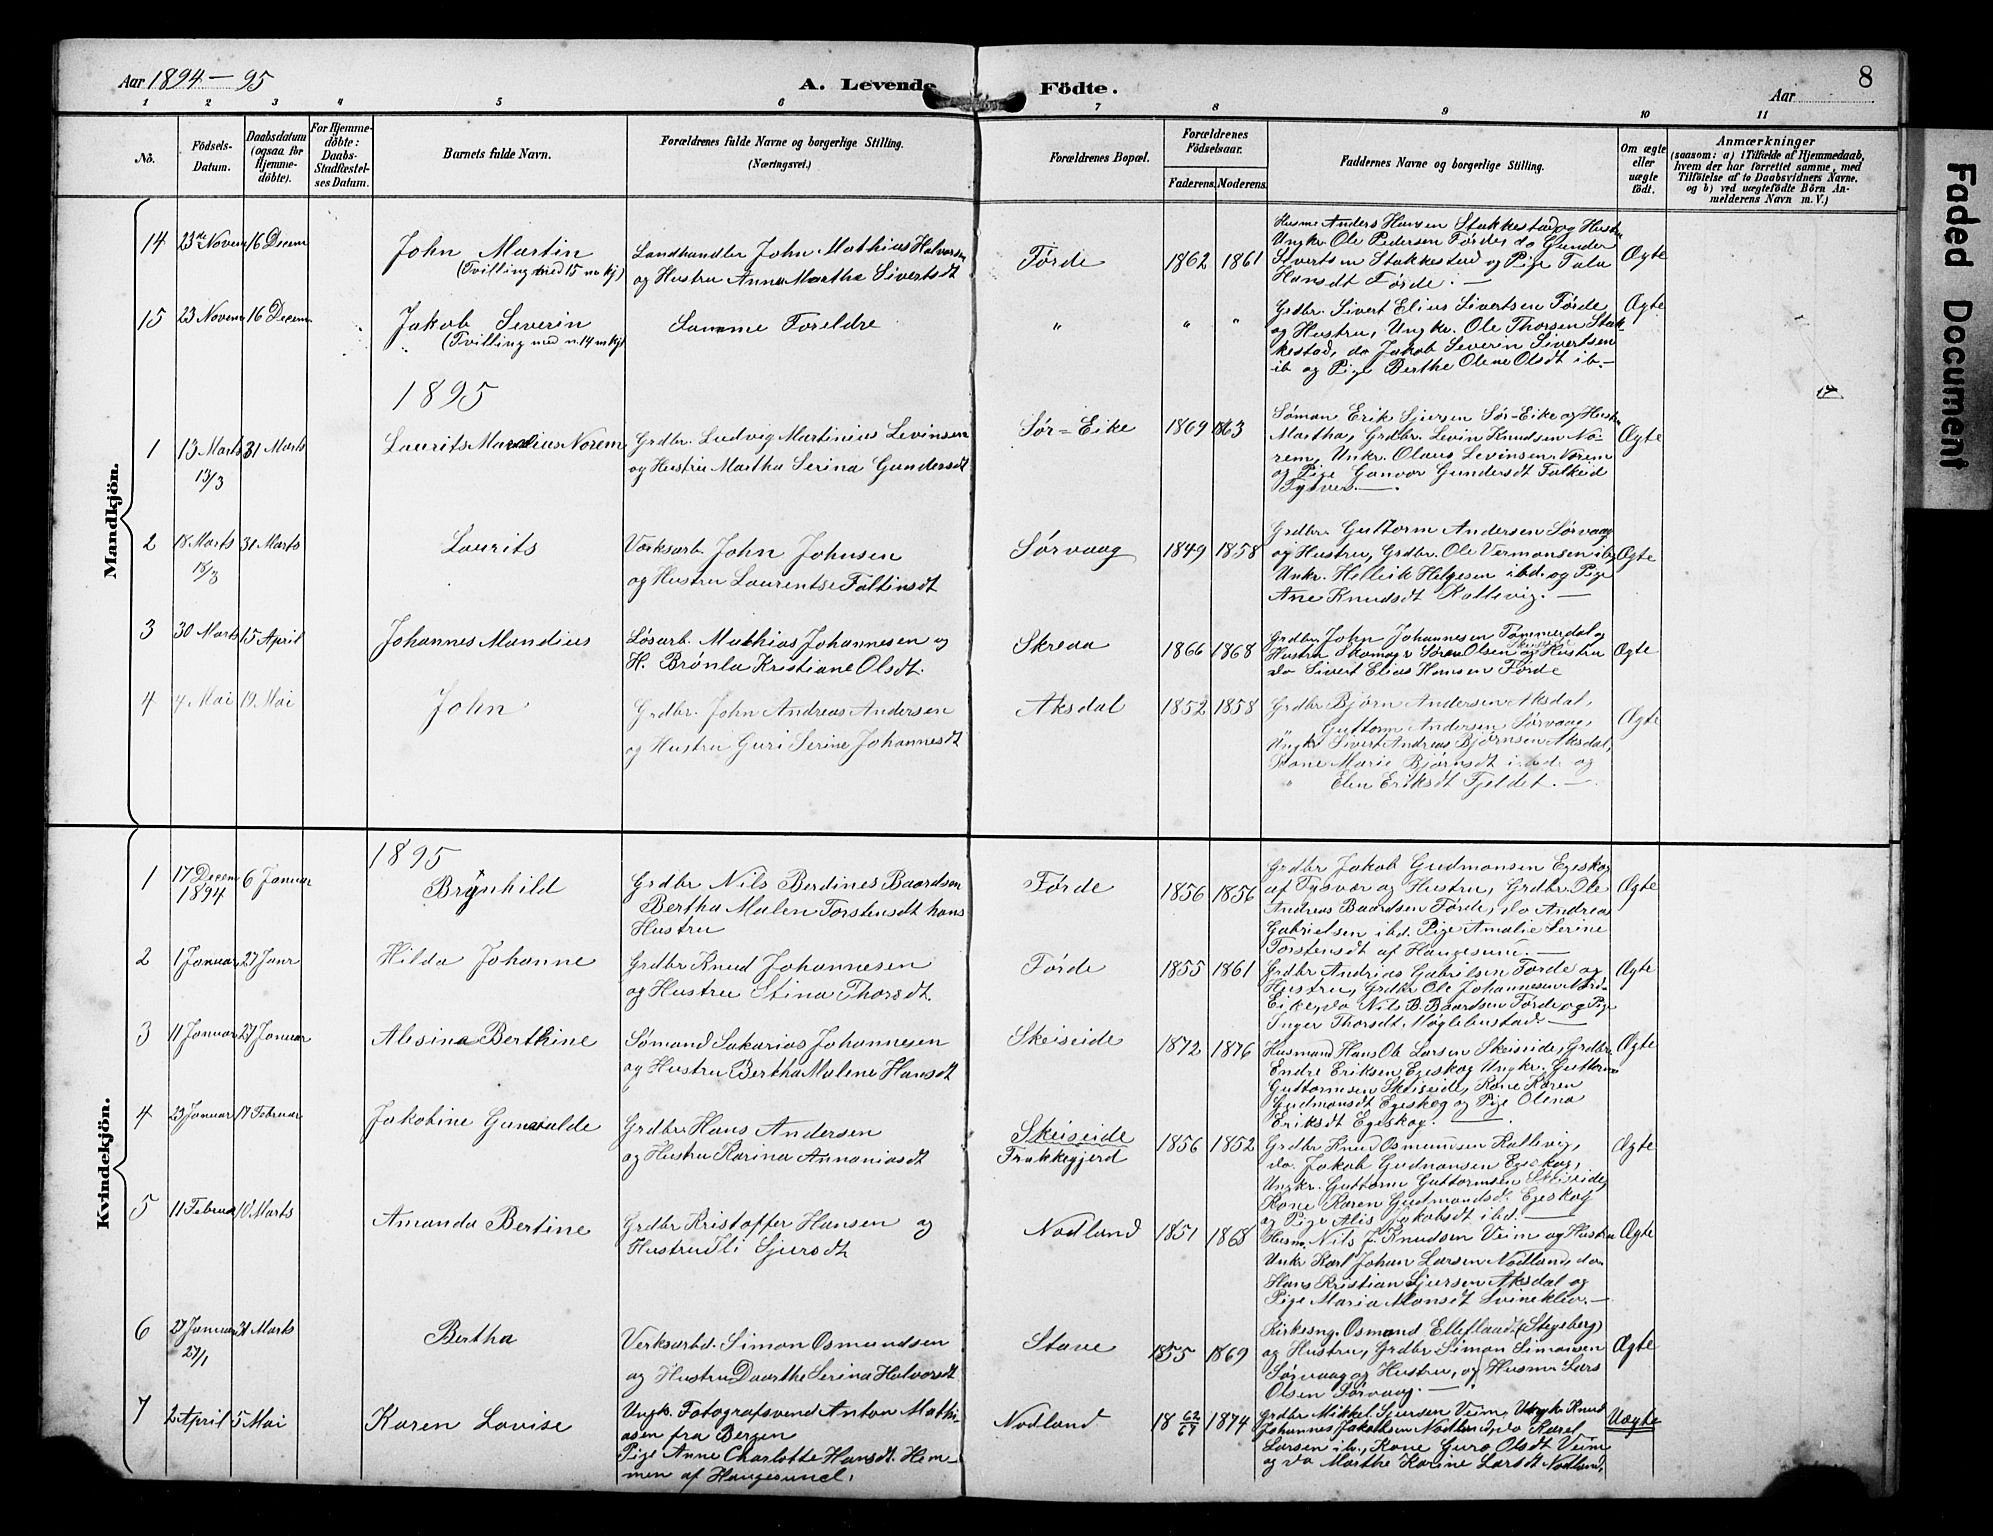 Aar 1894 – 95
A. Levende Födte.
8
Aar
1 2 3 4 5 6 7 8 9 10 11
No.
Födsels-Datum.
Daabsdatum (ogsaa for Hjemme-döbte).
For Hjemme-döbte: Daabs-Stadfæstel-ses Datum.
Barnets fulde Navn.
Forældrenes fulde Navne og borgerlige Stilling. (Næringsvei.)
Forældrenes Bopæl.
Forældrenes Födselsaar.
Faderens. Moderens.
Faddernes Navne og borgerlige Stilling.
Om ægte eller uægte födt.
Anmærkninger
(saasom: a) i Tilfælde af Hjemmedaab, hvem der har forrettet samme, med Tilföielse af to Daabsvidners Navne, og b) ved uægtefödte Börn Anmelderens Navn m. V.)
Faded Document
Mandkjön.
14 23de Novem 16 Decem
John Martin
(Tvilling med 15 m kj)
Landhandler John Mathias Halvorsen
og Hustru Anna Martha Sivertsdt
Førde 1862 1861
Husm Anders Hansen Stakkestad og Hustru
Ungkr Ole Pedersen Førde, do Gunder
Sivertsen Stakkestad og Pige Tala
Hansdt Førde. —
Ægte
15 23 Novem 16 Decem
Jakob Severin
(Tvilling med n. 14 mkj)
Samme Foreldre
" " "
Grdbr. Sivert Elias Sivertsen Førde
og Hustru, Ungkr. Ole Thorsen Stak-
kestad, do Jakob Severin Sivertsen
ib og Pige Berthe Olene Olsdt ib. —
Ægte
1895
1 13 Marts 31 Marts
13/3
Laurits Marelius Norem
Grdbr. Ludvig Martinius Levinsen
og Hustru Martha Serina Gundersdt
Sør-Eike 1869 1863
Søman Erik Sjursen Sør-Eike og Hustru
Martha, Grdbr. Levin Knudsen No-
rem, Unkr. Olaus Levinsen Norem
og Pige Gunvor Gundersdt Falkeid
Tysver. —
Ægte
2 18 Marts 31 Marts
18/3
Laurits
Værksarb. John Johnsen
og Hustru Laurentse Faltinsdt
Sørvaag 1849 1858
Grdbr. Guttorm Andersen Sørvaag
og Hustru, Grdbr. Ole Vermonsen ibd
Unkr. Hellik Helgesen ibd. og Pige
Ane Knudsdt Rallevig. —
Ægte
3 30 Marts 15 April
Johannes Mandius
Løsarb. Mathias Johannesen og
H. Brønla Kristiane Olsdt.
Skreaa 1866 1868
Grdbr. John Johannesen Tømmerdal og
Hustru Skomagr Søren Olsen og Hustru
do Sivert Elias Hansen Førde
Ægte
4 4 Mai 19 Mai
John
Grdbr. John Andreas Andersen
og Hustru Guri Serine Johannesdt
Aksdal 1852 1858
Grdbr Bjørn Andersen Aksdal,
" Guttorm Andersen Sørvaag,
Ungkr Sivert Andreas Bjørnsen Aksdal,
Kone Marie Bjørnsdt ibd. og
" Elen Eriksdt Fjeldet. —
Ægte
Kvindekjön.
1895
1 17 Decem 6 Januar
1894
Brynhild
Grdbr Nils Berdines Baardsen
Bertha Malen Torstensdt hans
Hustru
Førde 1856 1856
Grdbr Jakob Gudmonsen Egeskog
af Tysvær og Hustru, Grdbr Ole
Andreas Baardsen Førde, do Andreas
Gabrielsen ibd. Pige Amalie Serine
Torstensdt af Haugesund. —
Ægte
2 1 Januar 27 Janr
Hilda Johanne
Grdbr Knud Johannesen
og Hustru Stina Thorsdt.
Førde 1855 1861
Grdbr Andreas Gabrilsen Førde og
Hustru, Grdbr Ole Johannesen Nord-
Eike, do Nils B. Baardsen Førde og Pige
Inger Thorsdt Møglebustad. —
Ægte
3 11 Januar 27 Januar
Alesina Berthine
Sømand Sakarias Johannesen
og Hustru Bertha Malene Hansdt
Skeiseide 1872 1876
Husmand Hans Ole Larsen Skeiseide, Grdbr
Endre Eriksen Egeskog Ungkr. Guttorm
Guttormsen Skeiseide, Kone Karen
Gudmonsdt Egeskog og Pige Olena
Eriksdt Egeskog. —
Ægte
4 23 Januar 17 Februar
Jakobine Gunvalde
Grdbr Hans Andersen
og Hustru Karina Annaniasdt
Skeiseide
Frakkegjerd
1856 1852
Grdbr Knud Osmundsen Rallevig,
do. Jakob Gudmonsen Egeskog,
Ungkr. Guttorm Guttormsen Skeiseide,
Kone Karen Gudmundsdt. Egeskog
og Pige Alis Jakobsdt ibd. —
Ægte
5 11 Februa 10 Marts
Amanda Bertine
Grdbr Kristoffer Hansen og
Hustru Ili Sjursdt
Nodland 1851 1868
Husm. Nils J. Knudsen Veim og Hustru
Unkr Karl Johan Larsen Nodland, do
Hans Kristian Sjursen Aksdal og
Pige Maria Monsdt Svineklev. —
Ægte
6 27 Januar 31 Marts
27/1
Bertha
Verksarbd. Simon Osmundsen
og Hustru Daarthe Serina Halvorsdt
Stave 1855 1869
Kirkesng. Osmond Elleflaad (Stegsberg)
og Hustru, Grdbr Simon Simonsen
Sørvaag og Hustru, og Husmn Lars
Olsen Sørvaag. —
Ægte
7 2 April 5 Mai
Karen Lovise
Ungk. Fotografsvend Anton Mathi-
asen fra Bergen
Pige Anne Charlotte Hansdt. Hem-
men af Haugesund.
Nodland 18 62/67 1874
Grdbr Mikkel Sjursen Veim, Ungk Knud
Johannes Jakobsen Nodland, do Karel
Larsen ib., Kone Guro Olsdt Veim
og do Marthe Karine Larsdt Nodland,
Uægte